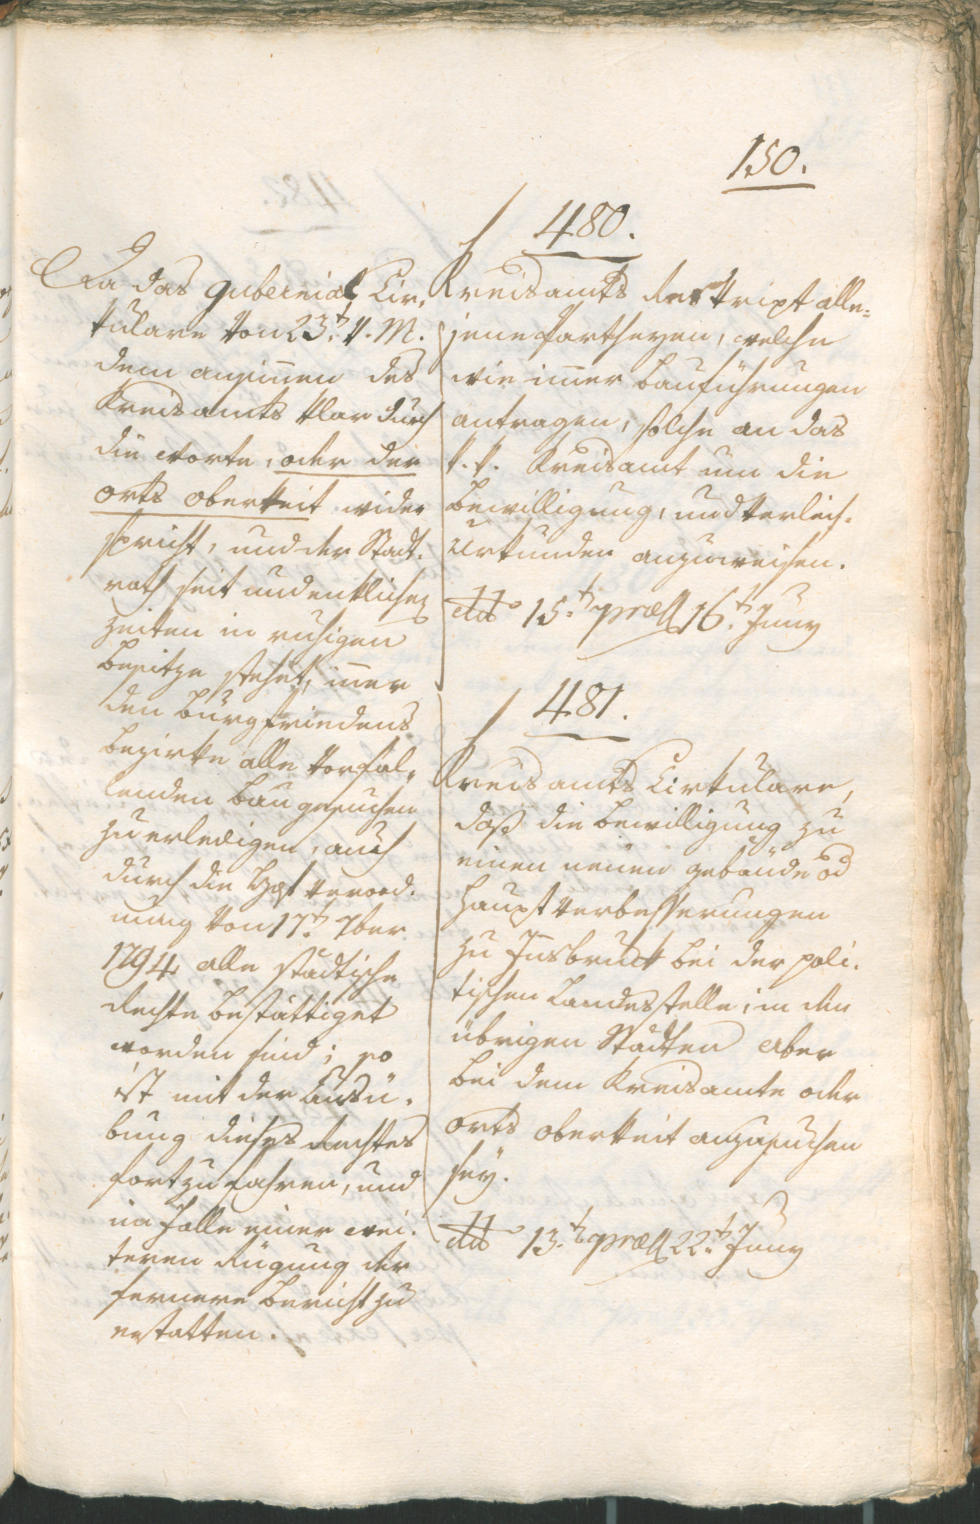 150.
480.
Kreisamts Reskript alle=
jene Partheyen, welche
wie imer Bauführungen
antragen, solche an das
k. k. Kreisamt um die
Bewilligung, und Verleih=
Urkunden anzuweisen.
ddo 15.t præs 16.t Juny
481.
Kreisamts Cirkulare,
daß die Bewilligung zu
einen neuen Gebäude od
Hauptverbesserungen
zu Insbruck bei der poli=
tischen Landesstelle, in den
übrigen Städten aber
bei dem Kreisamte oder
Orts Oberkeit anzusuchen
sey.
ddo 13.t præs 22.t Juny
Da das Gubernial Cir=
kulare von 23.t v. M.
dem ansinnen des
Kreisamts klar durch
die Worte, oder der
Orts Oberkeit wider
spricht, und der Stadt=
rath seit undenklichen
Zeiten in ruhigen
Besitze stehet, iner
den Burgfriedens
Bezirke alle vorfal=
lenden Baugesuchen
zu erledigen, auch
durch die Hofverord=
nung von 17.t 7ber
1794 alle städtische
Rechte bestättiget
worden sind; so
ist mit der Ausü=
bung dieses Rechtes
fortzufahren, und
im Falle einer wei=
teren Rügung der
fernere Bericht zu
erstatten.